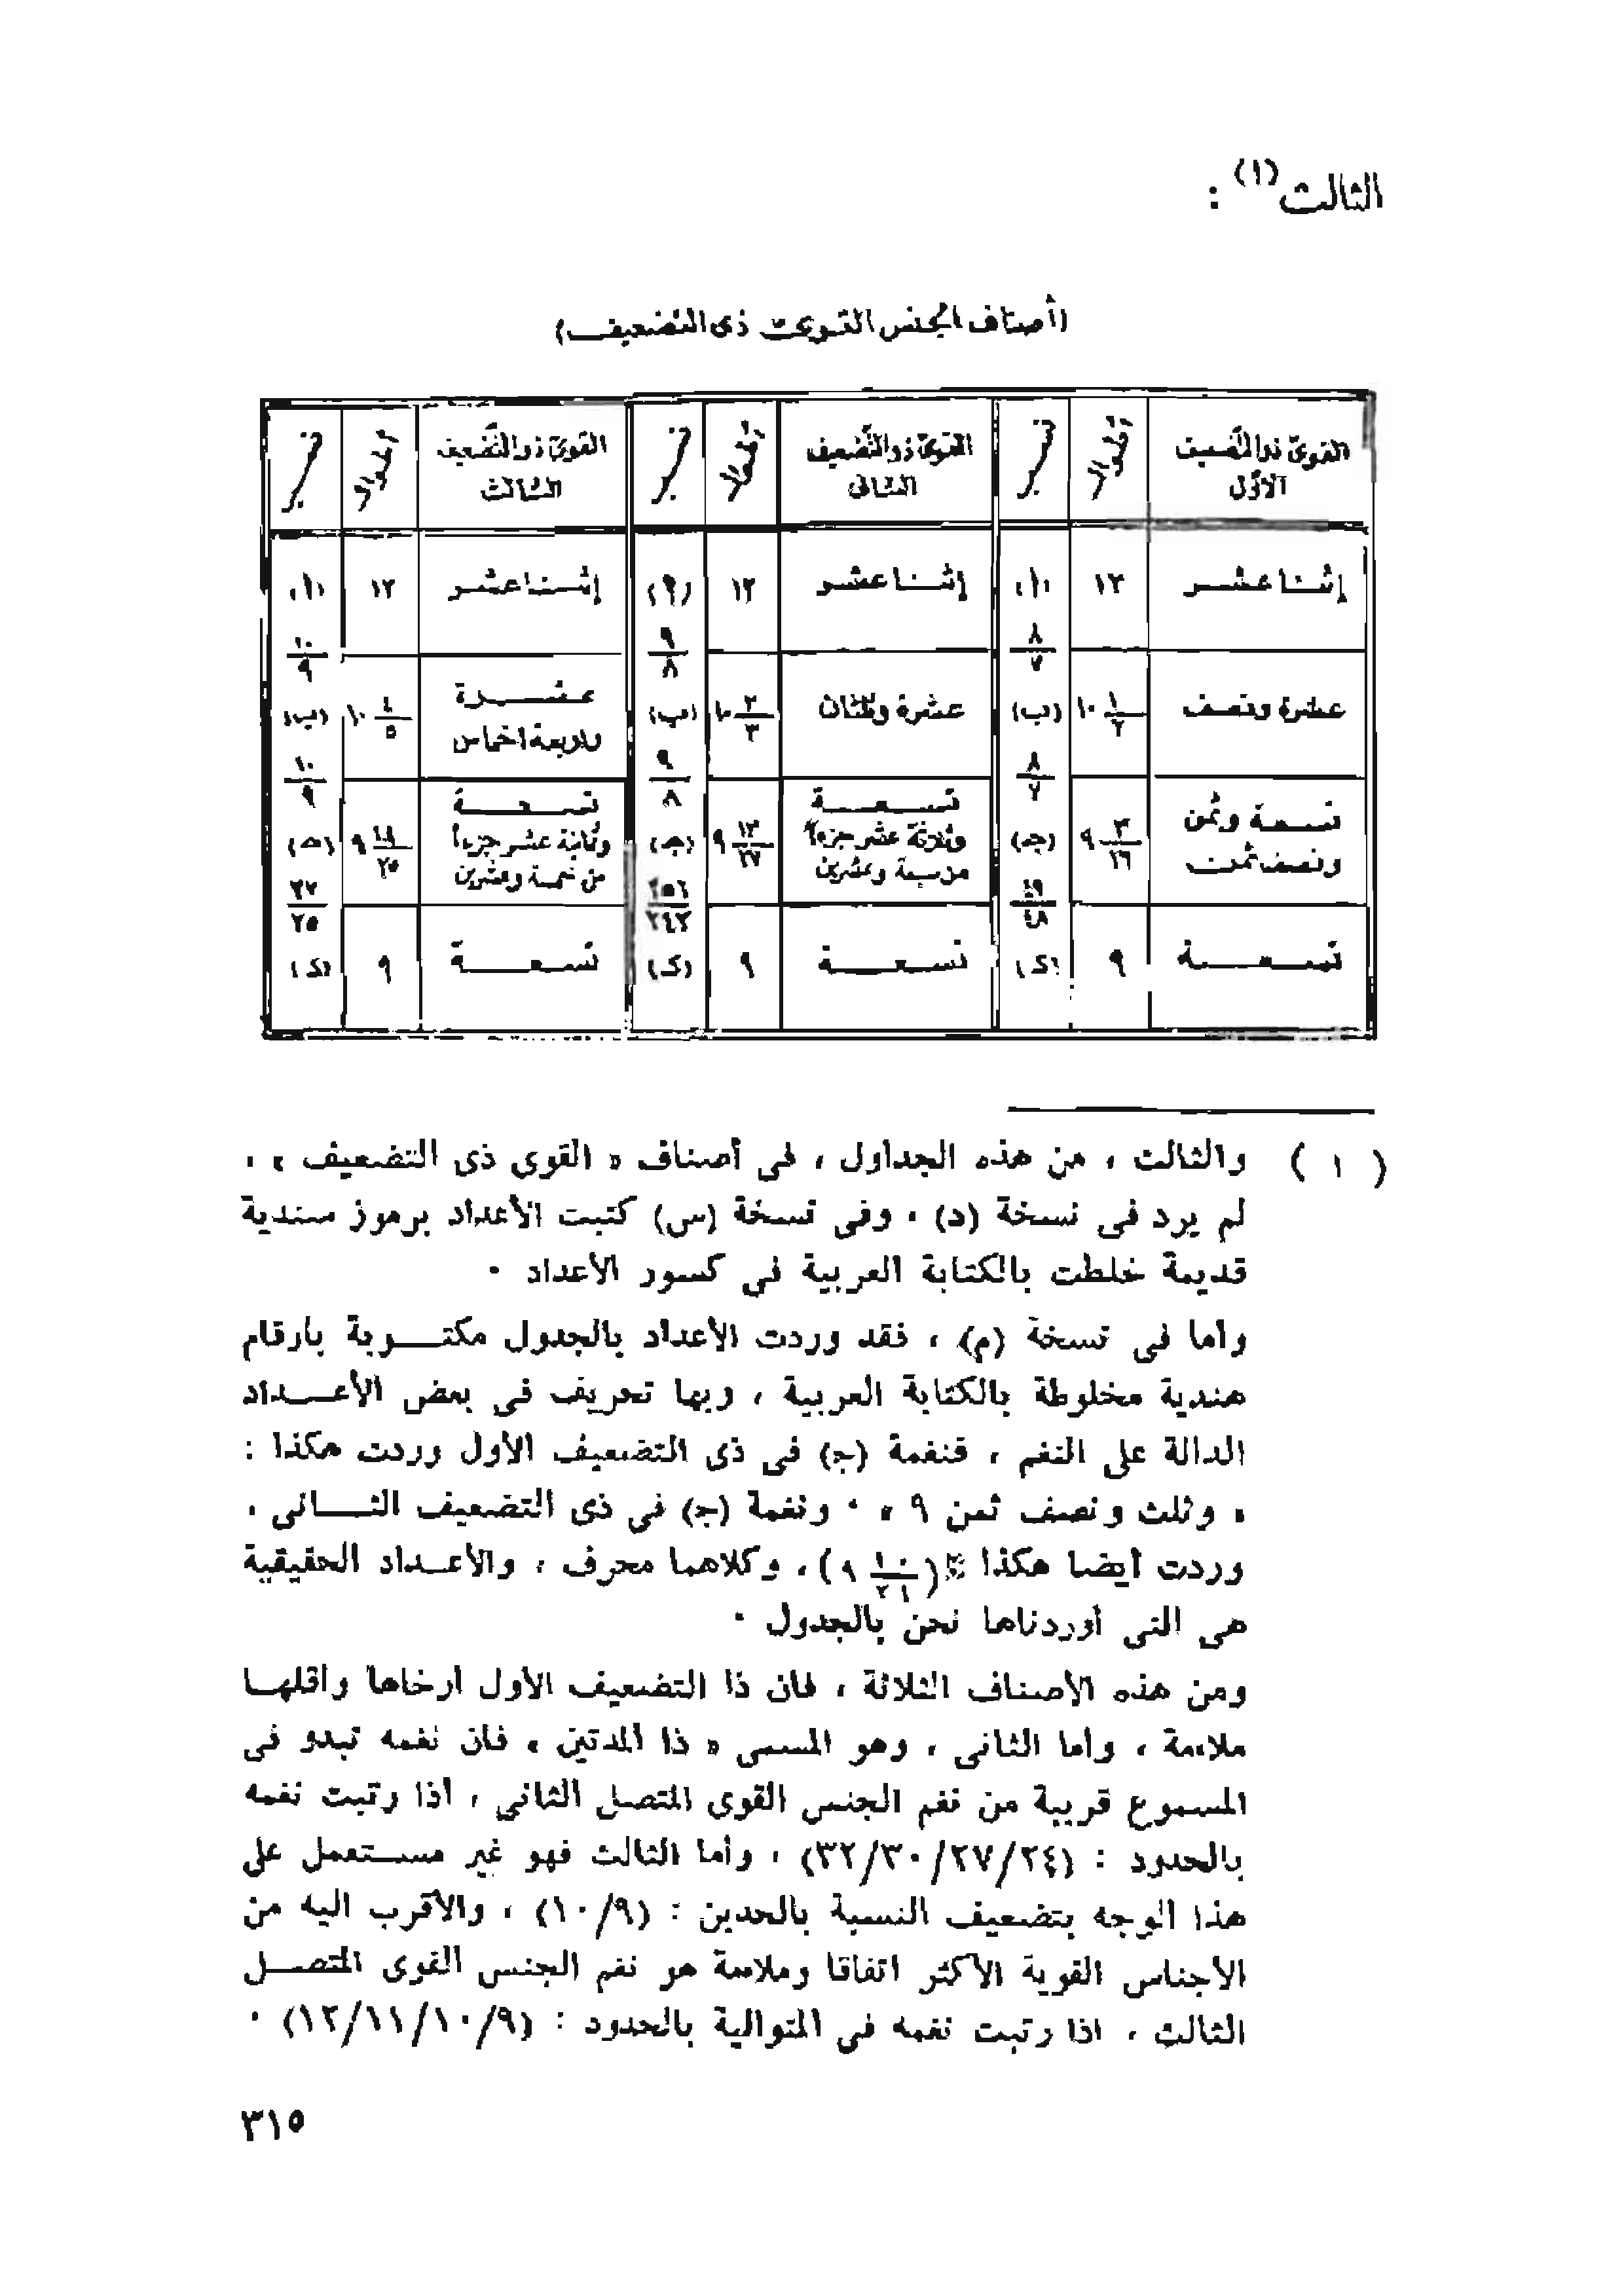 الثالث (١) :
(أصناف الجنس القوىّ ذى التضعيف)
القوىّ ذو التَّضعيف الأوّل | | | القوىّ ذو التَّضعيف الثانى | | | القوىّ ذو التَّضعيف الثالث | |
إثنا عشر | ١٢ | (ا) | إثنا عشر | ١٢ | (ا) | إثنا عشر | ١٢ | (ا)
٨/٧ | ٩/٨ | ١٠/٩
عشرة ونصف | ١٠ ١/٢ | (ب) | عشرة وثلثان | ١٠ ٢/٣ | (ب) | عشرة وأربعة أخماس | ١٠ ٤/٥ | (ب)
٨/٧ | ٩/٨ | ١٠/٩
تسعة وثمن ونصف ثمن | ٩ ٣/١٦ | (ج) | تسعة وثلاثة عشر جزءاً من سبعة وعشرين | ٩ ١٣/٢٧ | (ج) | تسعة وثمانية عشر جزءاً من خمسة وعشرين | ٩ ١٨/٢٥ | (ج)
٤٩/٤٨ | ٢٥٦/٢٤٣ | ٢٧/٢٥
تسعة | ٩ | (د) | تسعة | ٩ | (د) | تسعة | ٩ | (د)
( ١ ) والثالث ، من هذه الجداول ، فى أصناف « القوى ذى التضعيف » ،
لم يرد فى نسخة (د) ، وفى نسخة (س) كتبت الأعداد برموز سندية
قديمة خلطت بالكتابة العربية فى كسور الأعداد ٠
وأما فى نسخة (م) ، فقد وردت الأعداد بالجدول مكتوبة بأرقام
هندية مخلوطة بالكتابة العربية ، وبها تحريف فى بعض الأعداد
الدالة على النغم ، فنغمة (ج) فى ذى التضعيف الأول وردت هكذا :
« وثلث ونصف ثمن ٩ » ٠ ونغمة (ج) فى ذى التضعيف الثانى ،
وردت أيضا هكذا : (١٠/٢١ ٩) ، وكلاهما محرف ، والأعداد الحقيقية
هى التى أوردناها نحن بالجدول ٠
ومن هذه الأصناف الثلاثة ، فان ذا التضعيف الأول أرخاها وأقلها
ملاءمة ، وأما الثانى ، وهو المسمى « ذا المدتين » فان نغمه تبدو فى
المسموع قريبة من نغم الجنس القوى المتصل الثانى ، اذا رتبت نغمه
بالحدود : (٣٢/٣٠/٢٧/٢٤) ، وأما الثالث فهو غير مستعمل على
هذا الوجه بتضعيف النسبة بالحدين : (١٠/٩) ، والأقرب اليه من
الأجناس القوية الأكثر اتفاقا وملاءمة هو نغم الجنس القوى المتصل
الثالث ، اذا رتبت نغمه فى المتوالية بالحدود : (١٢/١١/١٠/٩) ٠
٣١٥